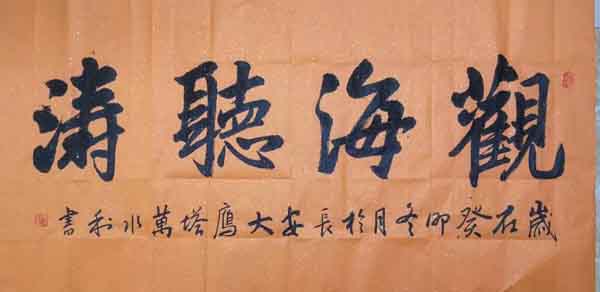 觀海聽濤
歲在癸卯冬月於長安大鷹塔萬水利書